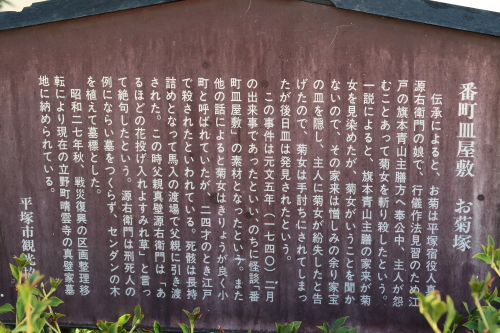 番町皿屋敷 お菊塚
伝承によると、お菊は平塚宿役人真
源右衛門の娘で、行儀作法見習のため江
戸の旗本青山主膳方へ奉公中、主人が怨
むことあって菊女を斬り殺したという。
一説によると、旗本青山主膳の家来が菊
女を見染めたが、菊女がいうことを聞か
ないので、その家来は憎しみの余り家宝
の皿を隠し、主人に菊女が紛失したと告
げたので、菊女は手討ちにされてしまっ
たが後日皿は発見されたという。
この事件は元文五年(一七四〇)二月
の出来事であったといい、のちに怪談「番
町皿屋敷」の素材となったという。また
他の話によると菊女はきりょうが良く小
町と呼ばれていたが、二四才のとき江戸
で殺されたといわれている。死骸は長持
詰めとなって馬入の渡場で父親に引き渡
された。この時父親真壁源右衛門は「あ
るほどの花投げ入れよすみれ草」と言っ
て絶句したという。源右衛門は刑死人の
例にならい墓をつくらず、センダンの木
を植えて墓標とした。
昭和二七年秋、戦災復興の区画整理移
転により現在の立野町晴雲寺の真壁家墓
地に納められている。
平塚市観光協